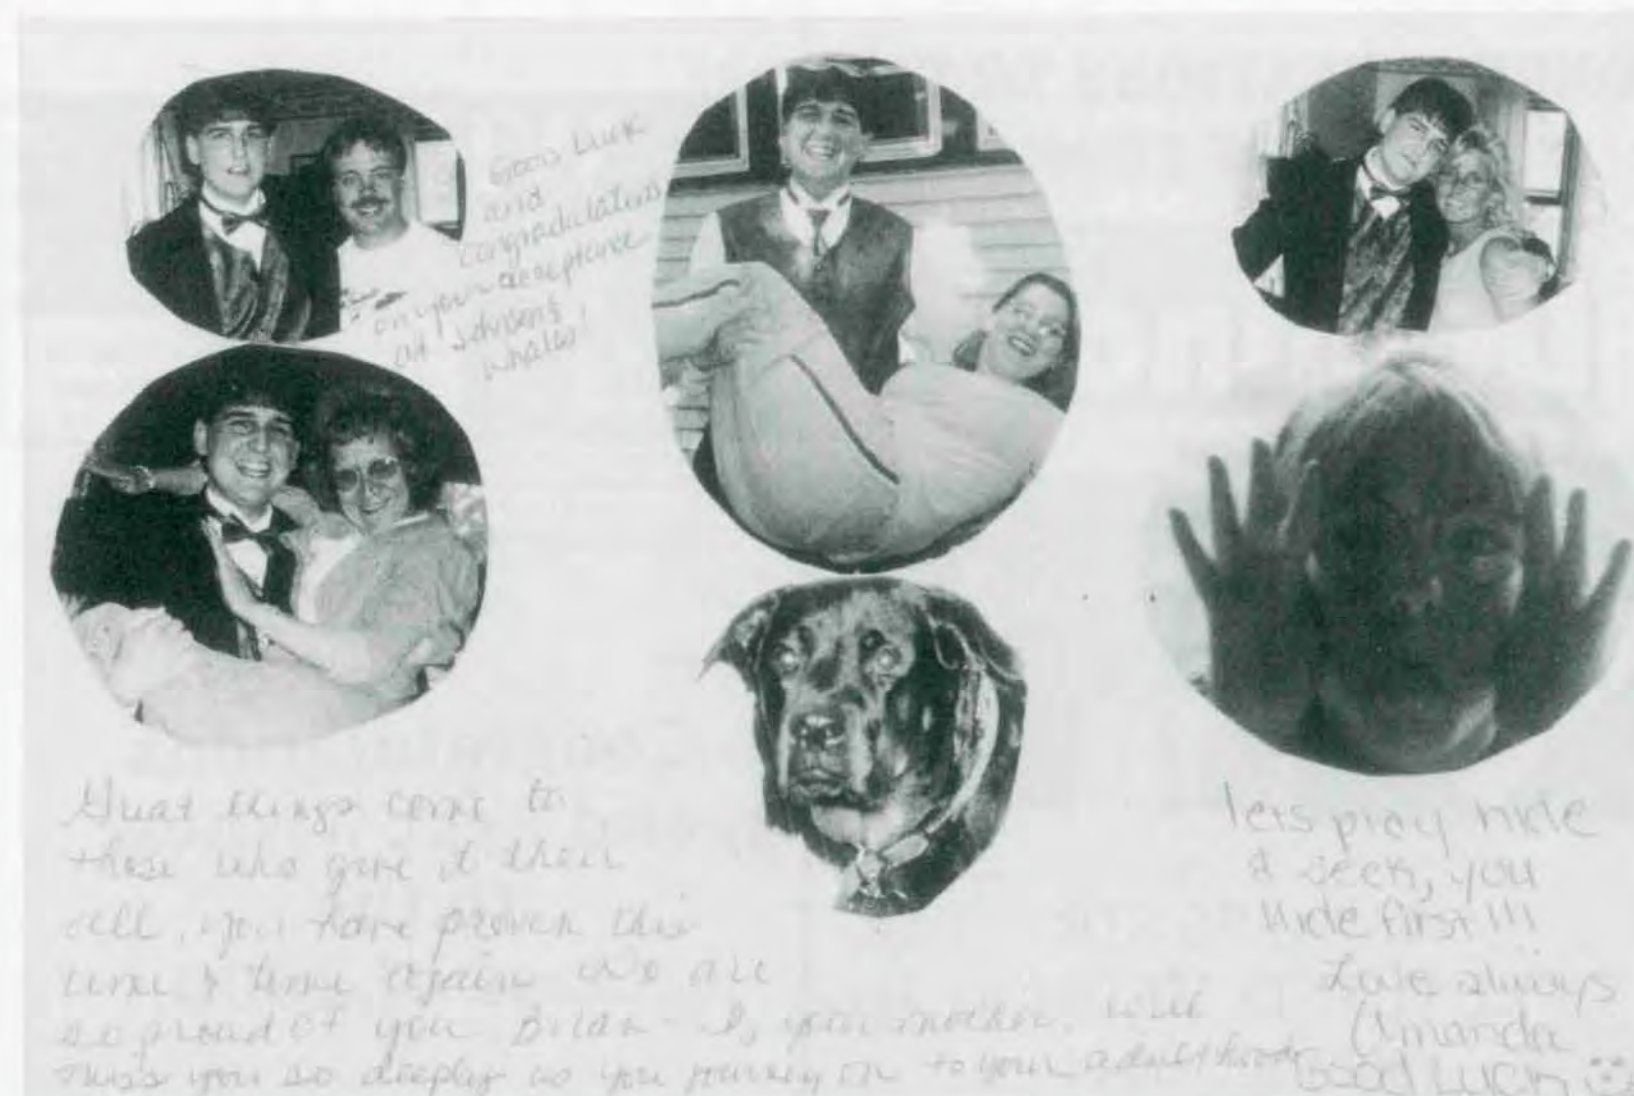 Good Luck
and
congradulations
on your acceptance
at Johnson &
Whales!
Great things come to
those who give it their
all, you have proven this
time & time again We are
so proud of you Brian - I, your mother, will
miss you so deeply as you journey on to your adulthood
lets play hide
& seek, you
Hide first!!!
Love always
Amanda
Good Luck